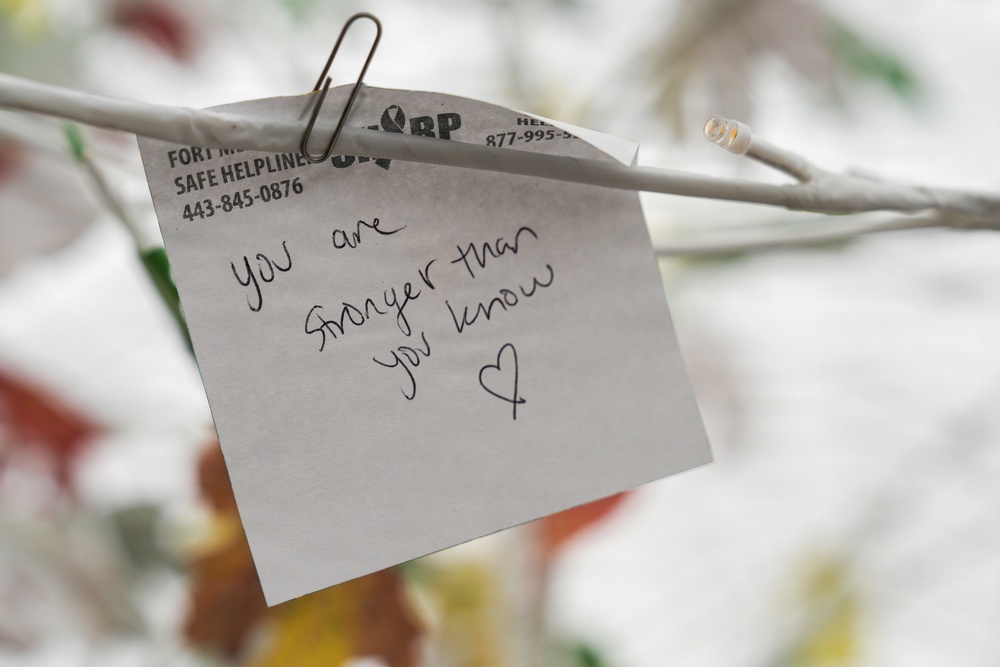 FORT
SAFE HELPLINE
443-845-0876
877-995-5
you are
stronger than
you know